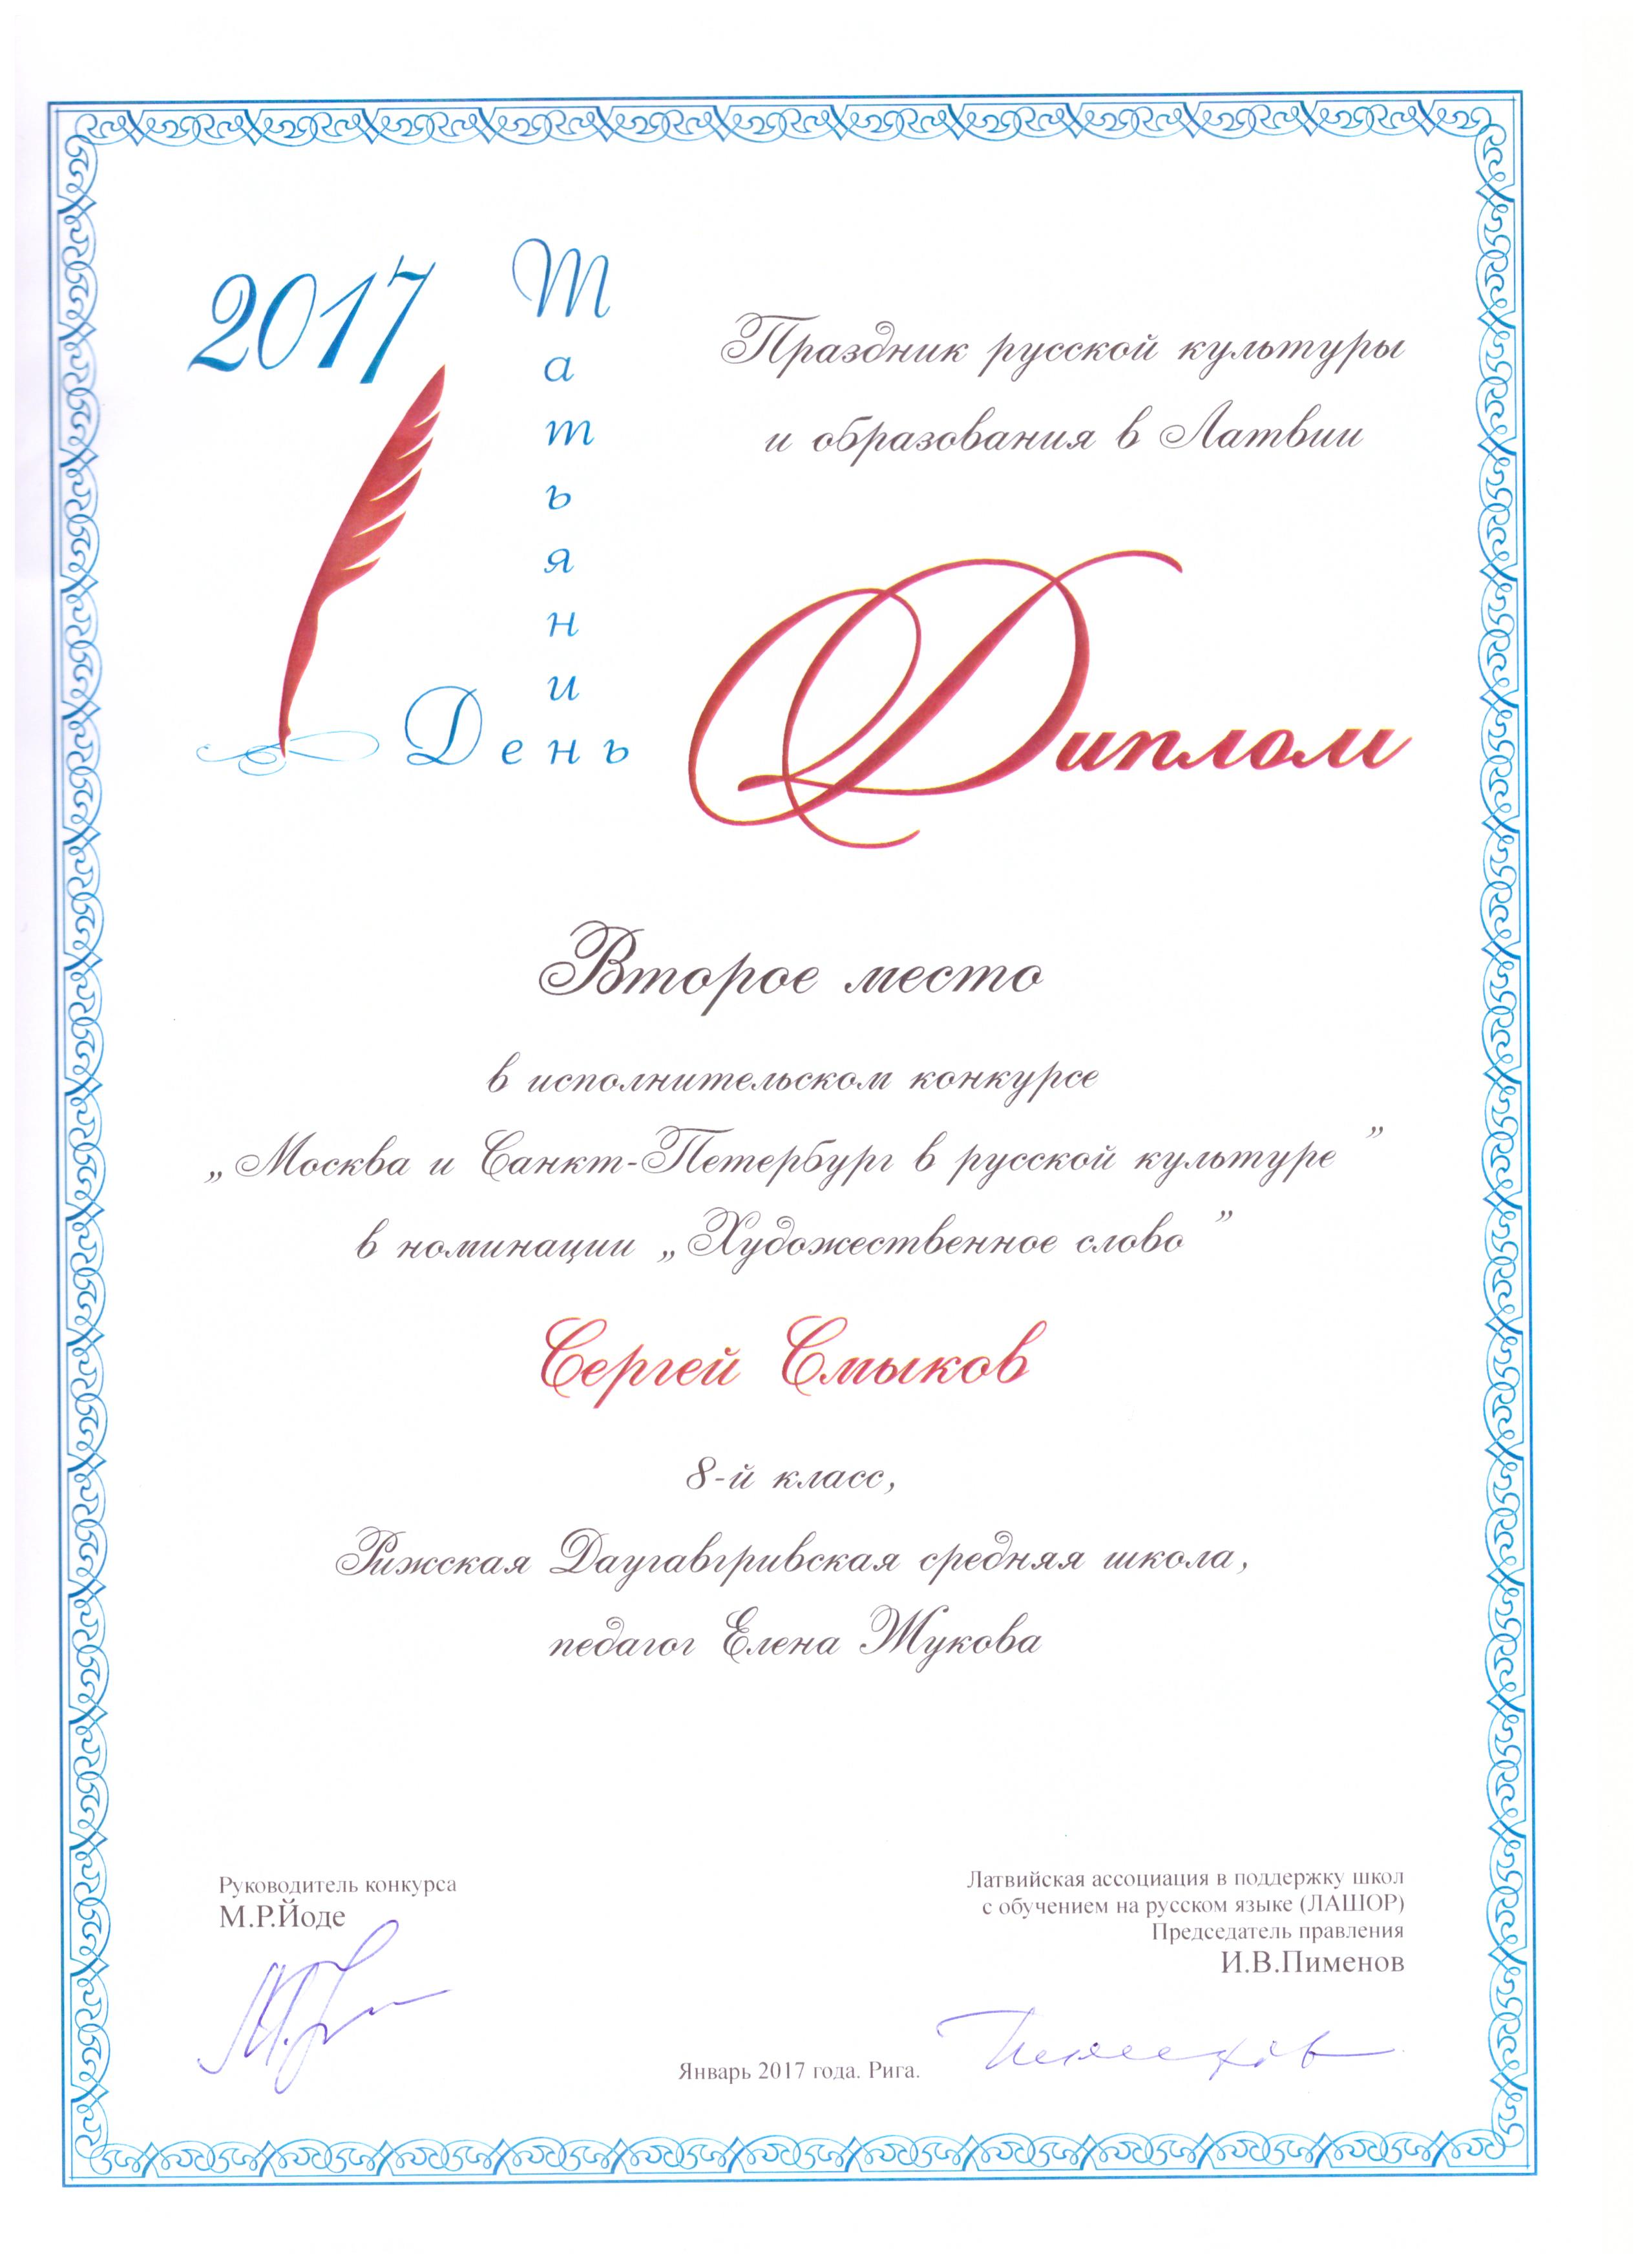 2017
Татьянин
День
Праздник русской культуры
и образования в Латвии
Диплом
Второе место
в исполнительском конкурсе
„Москва и Санкт-Петербург в русской культуре”
в номинации „Художественное слово”
Сергей Смыков
8-й класс,
Рижская Даугавгривская средняя школа,
педагог Елена Жукова
Руководитель конкурса
М.Р.Йоде
Латвийская ассоциация в поддержку школ
с обучением на русском языке (ЛАШОР)
Председатель правления
И.В.Пименов
Январь 2017 года. Рига.